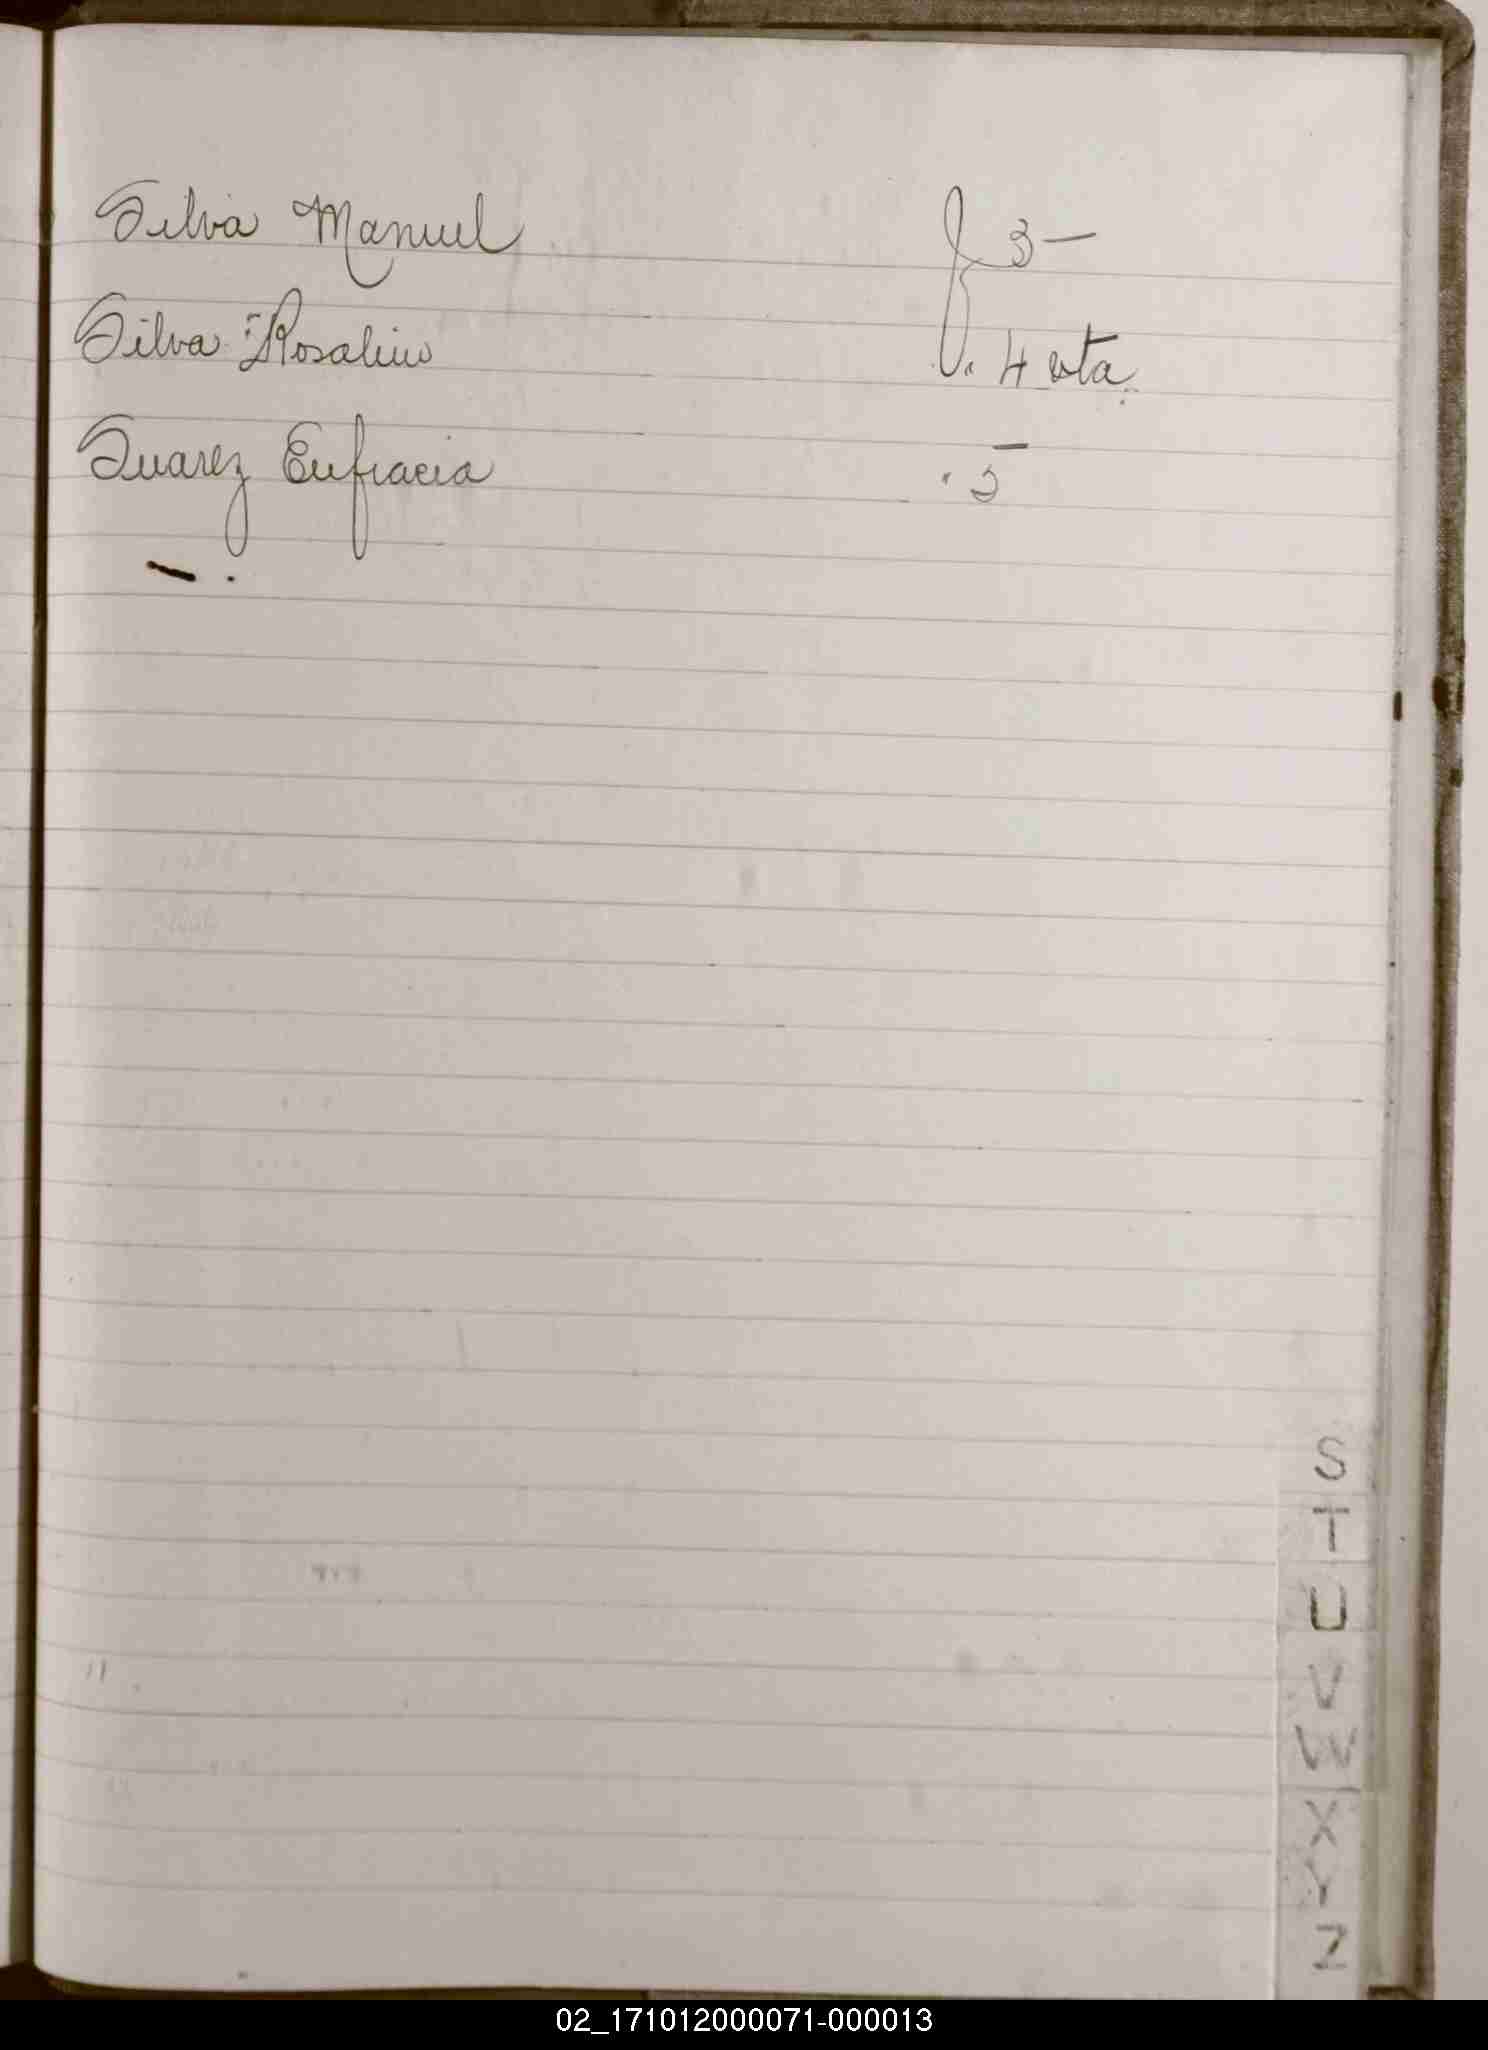 Silva Manuel f 3 —
Silva Rosalino . 4 vta
Suarez Eufracia . 5
S
T
U
V
W
X
Y
Z
02_171012000071-000013